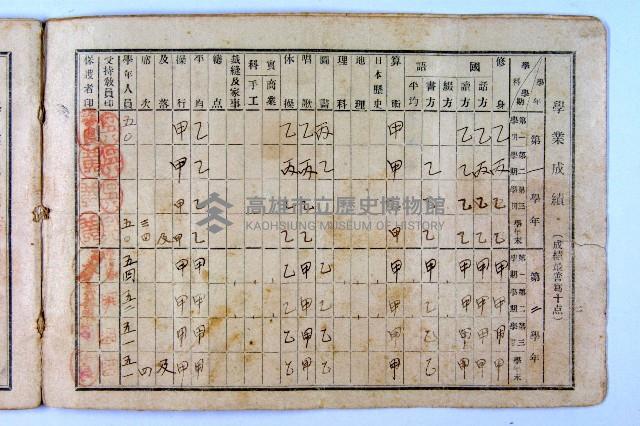 學業成績 (成績最善為十点)
學年 第一學年 第二學年
學科 學期 第一學期 第二學期 第三學期 學年末 第一學期 第二學期 第三學期 學年末
修身 乙 丙 乙 乙 甲 甲 甲 甲
國語 話方 乙 丙 乙 乙 甲 甲 甲 甲
讀方 乙 乙 乙 乙 甲 甲 甲 甲
綴方
書方 乙 乙 甲 乙 乙 乙
平均
算術 甲 甲 甲 甲 甲 甲 甲
日本歷史
地理
理科
圖畫 丙 乙 乙 乙 乙 乙 乙
唱歌 乙 丙 乙 甲 甲 甲 甲
體操 乙 丙 乙 甲 甲 乙 乙
實商業
科手工
裁縫及家事
總点
平均 乙 乙 乙 乙 甲 甲 甲 甲
操行 甲 甲 甲 甲 甲 甲 甲 甲
及落 及 及
席次 三四 四
學年人員 五〇 五〇 五四 五二 五一 五一
受持敎員印
保護者印
高雄市立歷史博物館
KAOHSIUNG MUSEUM OF HISTORY